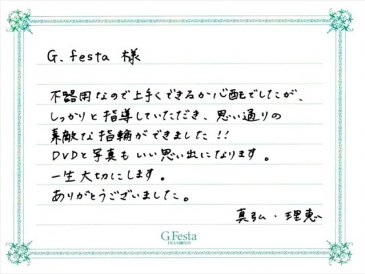 G.festa 様
不器用なので上手くできるか心配でしたが、
しっかりと指導していただき、思い通りの
素敵な指輪ができました!!
DVDと写真もいい思い出になります。
一生大切にします。
ありがとうございました。
真弘・理恵
G.Festa
DIAMOND